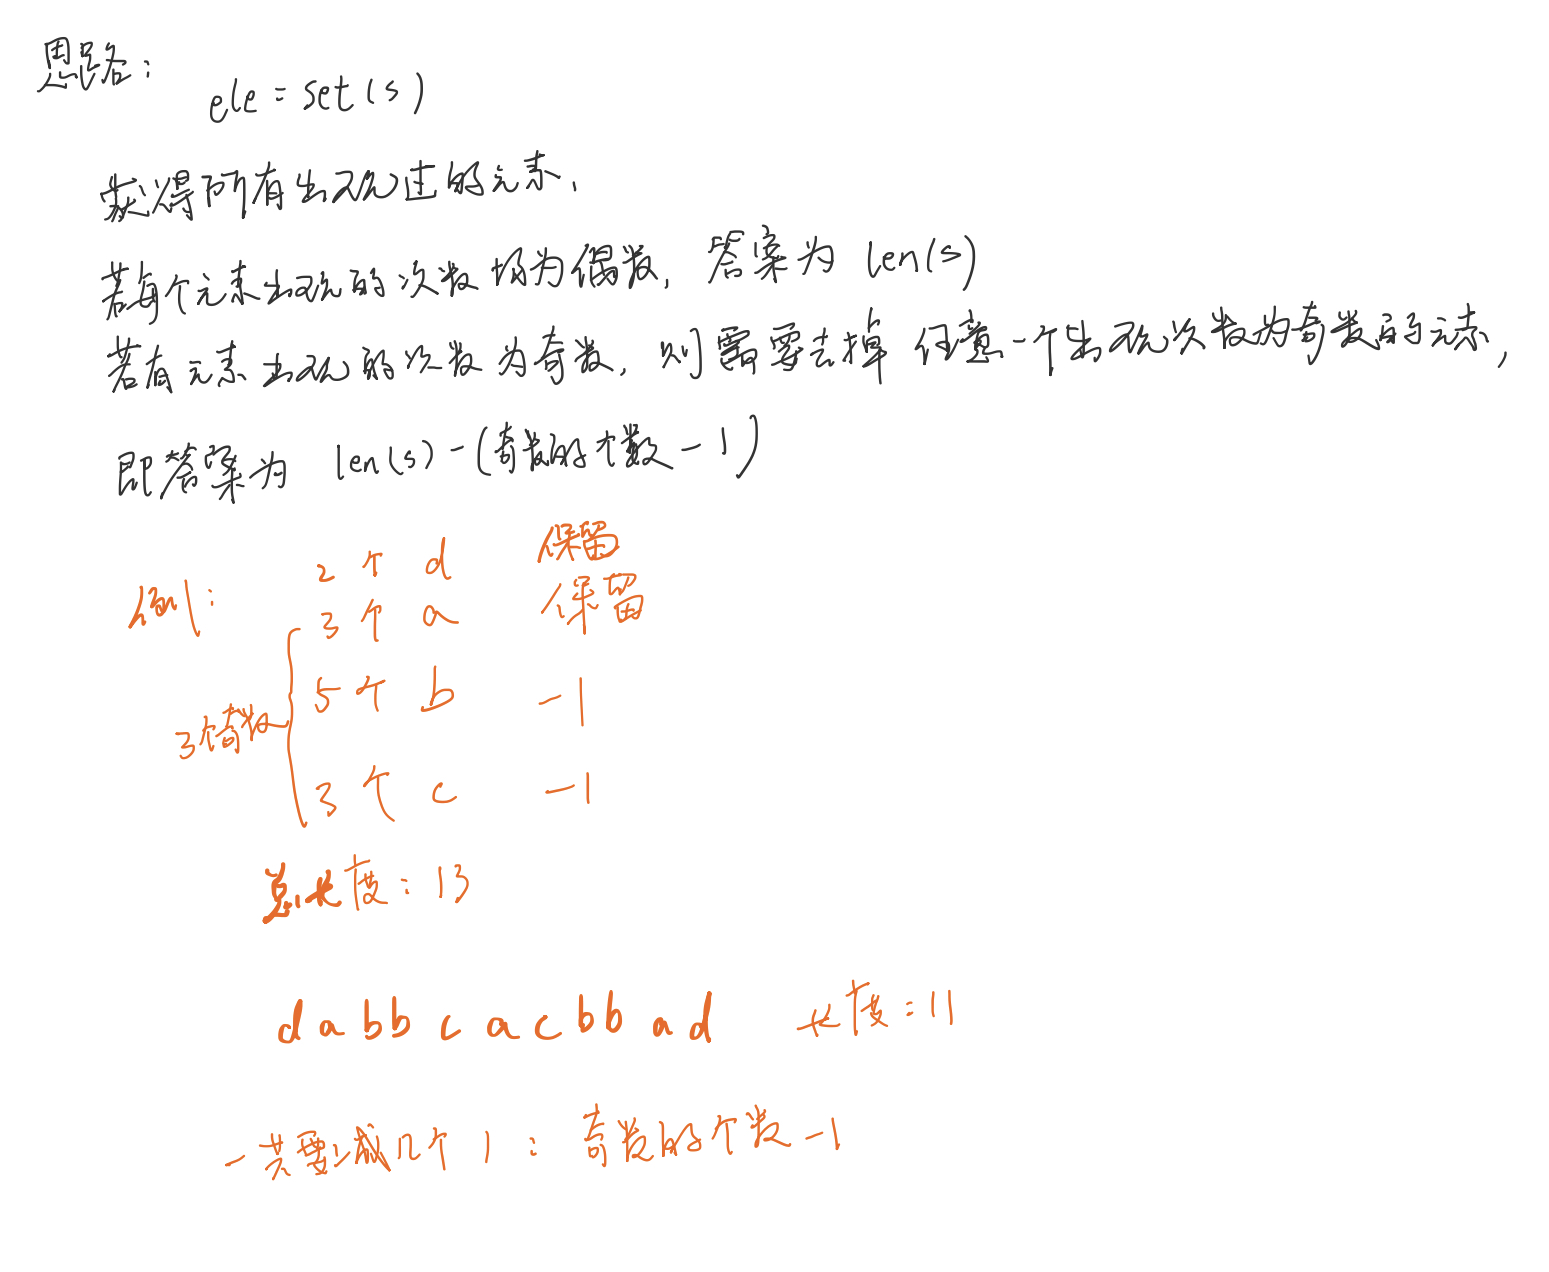 思路：
ele = set(s)
获得所有出现过的元素，
若每个元素出现的次数均为偶数，答案为 len(s)
若有元素出现的次数为奇数，则需要去掉任意一个出现次数为奇数的元素，
即答案为 len(s) - (奇数的个数 - 1)
例：
2个 d 保留
3个 a 保留
5个 b -1
3个奇数
3个 c -1
总长度：13
d a b b c a c b b a d 长度：11
一共要减几个1：奇数的个数 -1